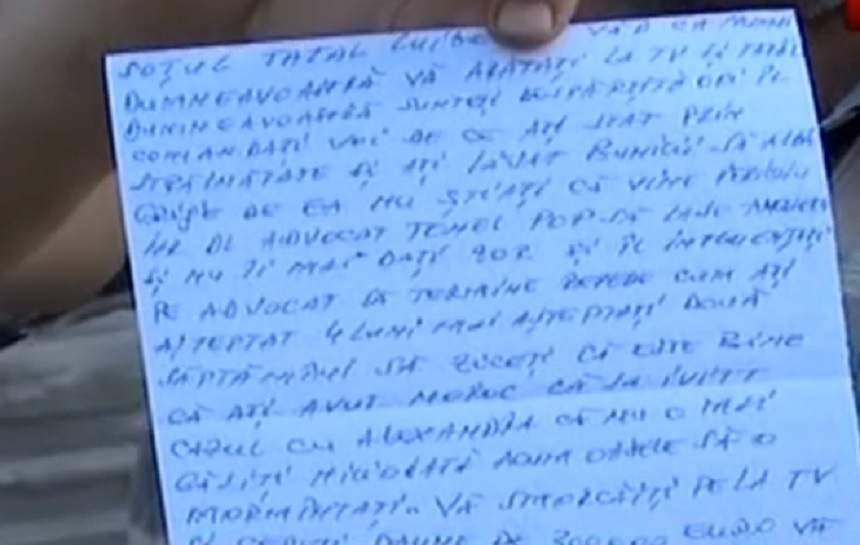 SOȚUL TATĂL LUI
DUMNEAVOASTRĂ VĂ ARĂTAȚI LA TV ȘI
DUMNEAVOASTRĂ SUNTEȚI DESPĂRȚITĂ ORI ÎL
COMANDAȚI VOI DE CE AȚI STAT PRIN
STRĂINĂTATE ȘI AȚI LĂSAT BUNICII SĂ AIBĂ
GRIJE DE EA NU ȘTIAȚI CĂ VINE
DL ADVOCAT TOMEL POP SĂ LASE
ȘI NU ÎI MAI DAȚI ZOR ȘI ÎL
PE ADVOCAT SĂ TERMINE REPEDE CUM AȚI
AȘTEPTAT 4 LUNI MAI AȘTEPTAȚI DOUĂ
SĂPTĂMÎNI SĂ ZICEȚI CĂ ESTE BINE
CĂ AȚI AVUT NOROC CĂ SA IVIT
CAZUL CU ALEXANDRA CĂ NU O MAI
GĂSIȚI NICIODATĂ OASELE SĂ O
MORMÎNTAȚI. VĂ SMORCĂIȚI PE LA TV
DAUNE DE 300.000 EURO VĂ